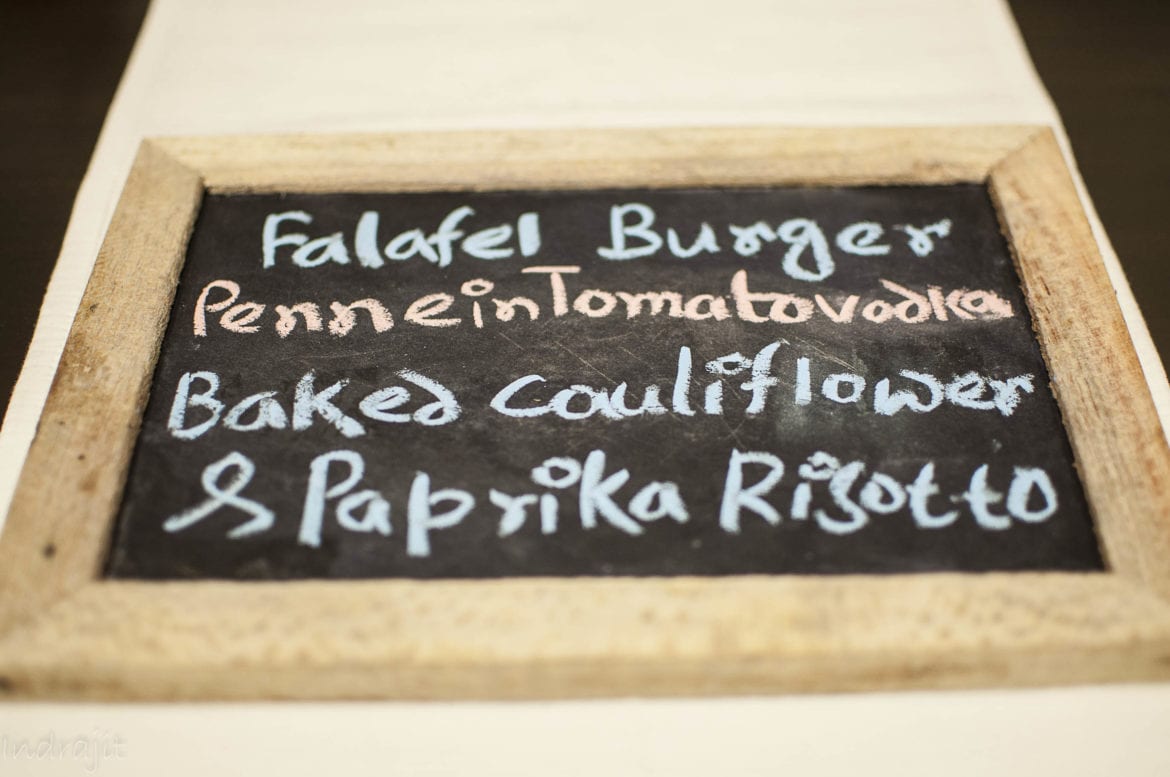 Falafel Burger
Penne in Tomato vodka
Baked cauliflower
& Paprika Risotto
Indrajit